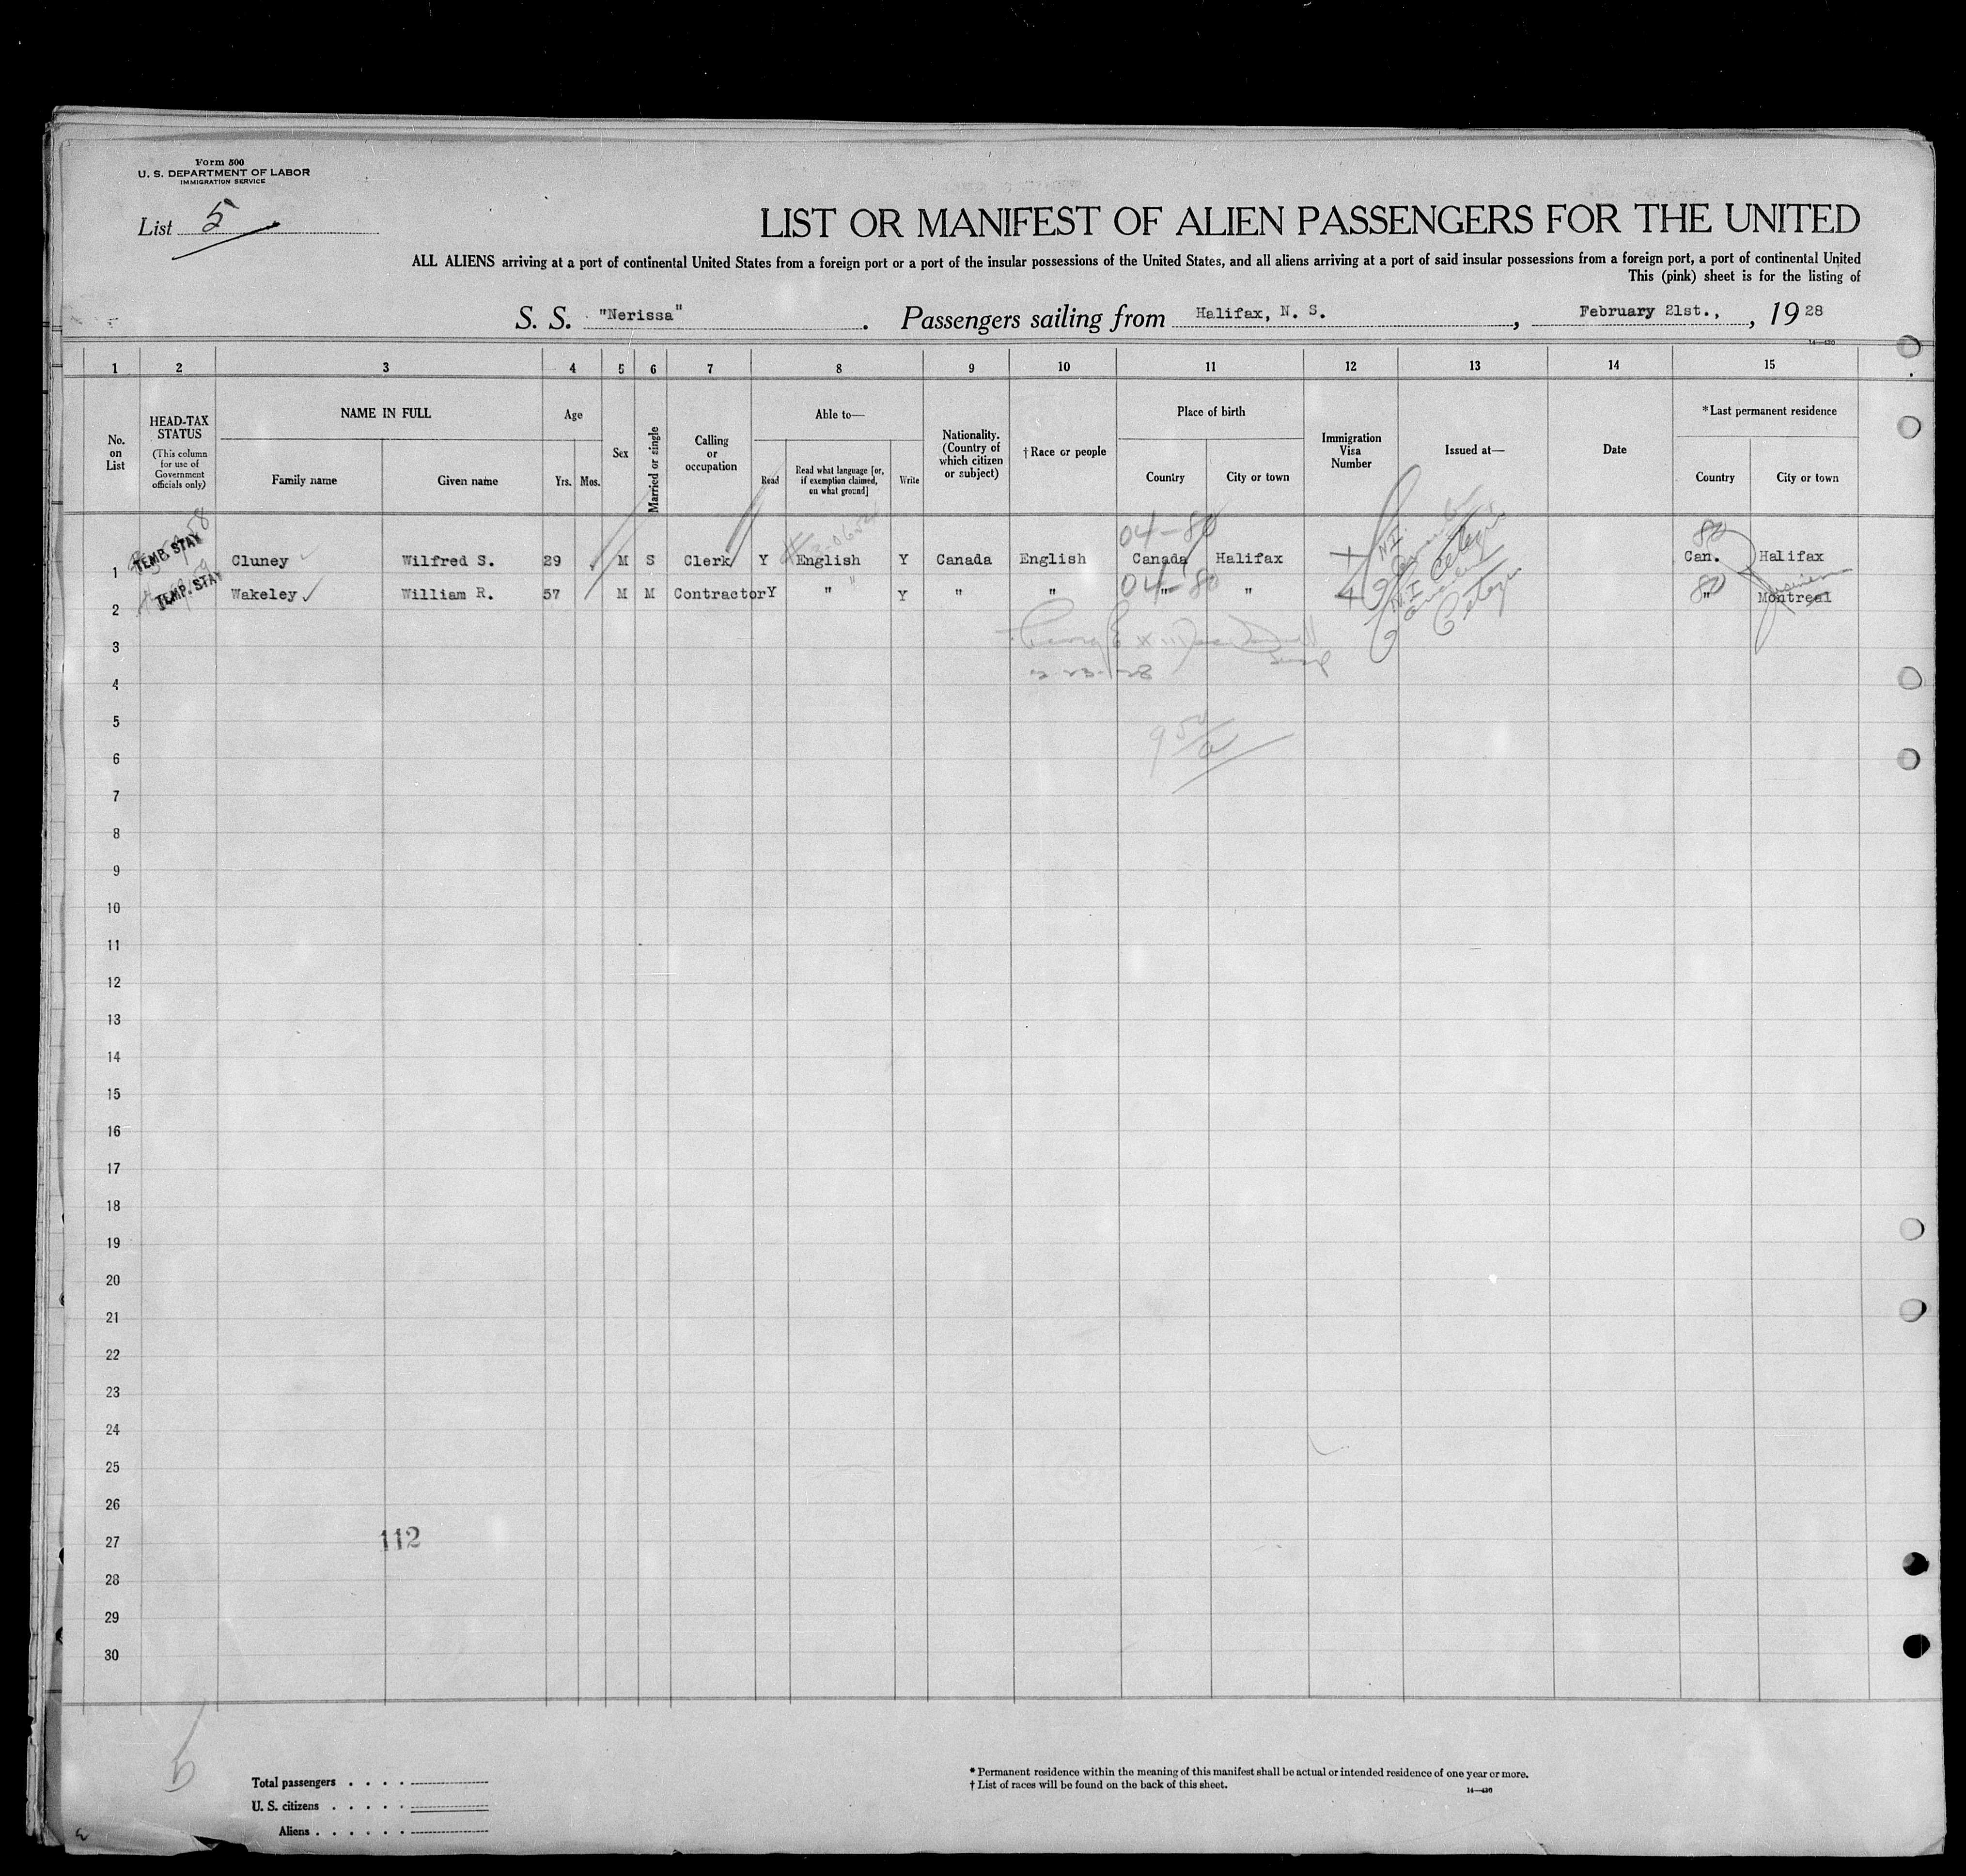 Form 500
U. S. DEPARTMENT OF LABOR
IMMIGRATION SERVICE
List 5
LIST OR MANIFEST OF ALIEN PASSENGERS FOR THE UNITED
ALL ALIENS arriving at a port of continental United States from a foreign port or a port of the insular possessions of the United States, and all aliens arriving at a port of said insular possessions from a foreign port, a port of continental United
This (pink) sheet is for the listing of
S. S. "Nerissa". Passengers sailing from Halifax, N. S., February 21st., , 19 28
14—420
1 2 3 4 5 6 7 8 9 10 11 12 13 14 15
No. on List
HEAD-TAX STATUS (This column for use of Government officials only)
NAME IN FULL Family name Given name
Age Yrs. Mos.
Sex
Married or single
Calling or occupation
Able to— Read Read what language [or, if exemption claimed, on what ground] Write
Nationality. (Country of which citizen or subject)
†Race or people
Place of birth Country City or town
Immigration Visa Number
Issued at—
Date
*Last permanent residence Country City or town
04-80 80
1 TEMP. STAY Cluney Wilfred S. 29 M S Clerk Y English Y Canada English Canada Halifax Can. Halifax
04-80 80
2 TEMP. STAY Wakeley William R. 57 M M Contractor Y " Y " " " " " Montreal
3
2-23-28
4
5
6
7
8
9
10
11
12
13
14
15
16
17
18
19
20
21
22
23
24
25
26
27 112
28
29
30
Total passengers . . . .
U. S. citizens . . . . .
Aliens . . . . . .
* Permanent residence within the meaning of this manifest shall be actual or intended residence of one year or more.
† List of races will be found on the back of this sheet.
14—420